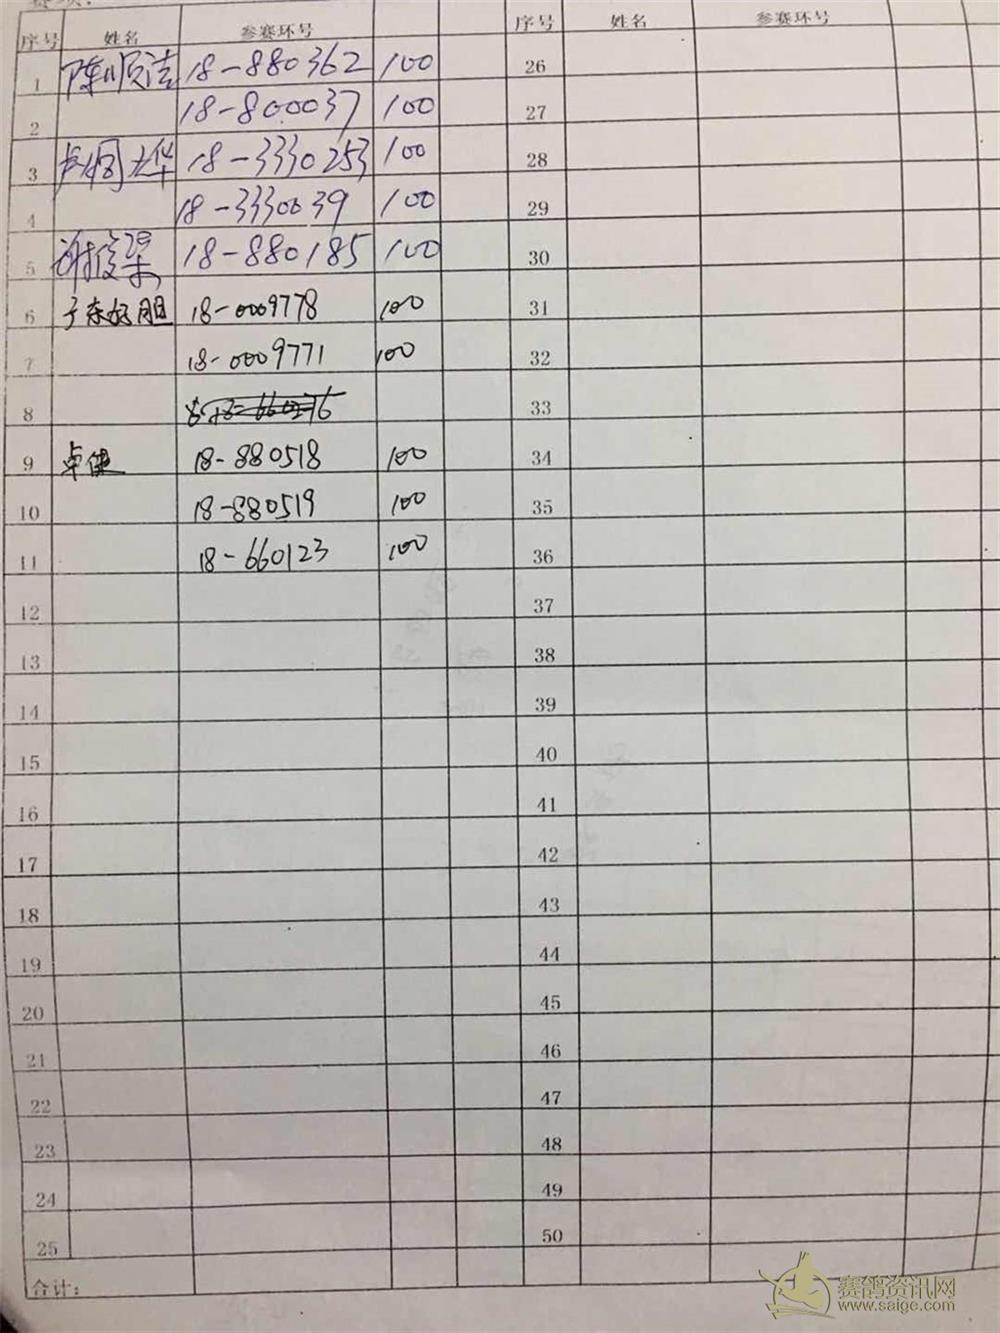 序号 姓名 参赛环号 序号 姓名 参赛环号
1 陈顺洁 18-880362 100 26
2 18-800037 100 27
3 18-3330253 100 28
4 18-3330039 100 29
5 谢俊梁 18-880185 100 30
6 18-0009778 100 31
7 18-0009771 100 32
8 33
9 卓健 18-880518 100 34
10 18-880519 100 35
11 18-660123 100 36
12 37
13 38
14 39
15 40
16 41
17 42
18 43
19 44
20 45
21 46
22 47
23 48
24 49
25 50
合计:
赛鸽资讯网
www.saige.com